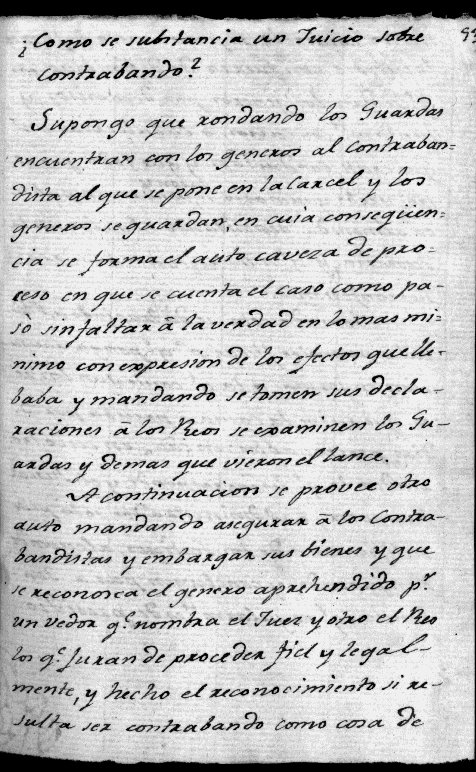 ¿Como se substancia un Juicio sobre
Contrabando?
Supongo que rondando los Guardas
encuentran con los generos al Contraban=
dista al que se pone en la Carcel y los
generos se guardan, en cuia conseqüen-
cia se forma el auto caveza de pro=
ceso en que se cuenta el caso como pa-
sò sin faltar â la verdad en lo mas mi=
nimo con expresion de los efectos que lle-
baba y mandando se tomen sus decla-
raciones â los Reos se examinen los Gu-
ardas y demas que vieron el lance.
A continuacion se provee otro
auto mandando asegurar â los Contra-
bandistas y embargar sus bienes y que
se reconosca el genero aprehendido pr.
un vedor qe. nombra el Juez y otro el Reo
los qe. Juran de proceder fiel y legal-
mente, y hecho el reconocimiento si re-
sulta ser contrabando como cosa de